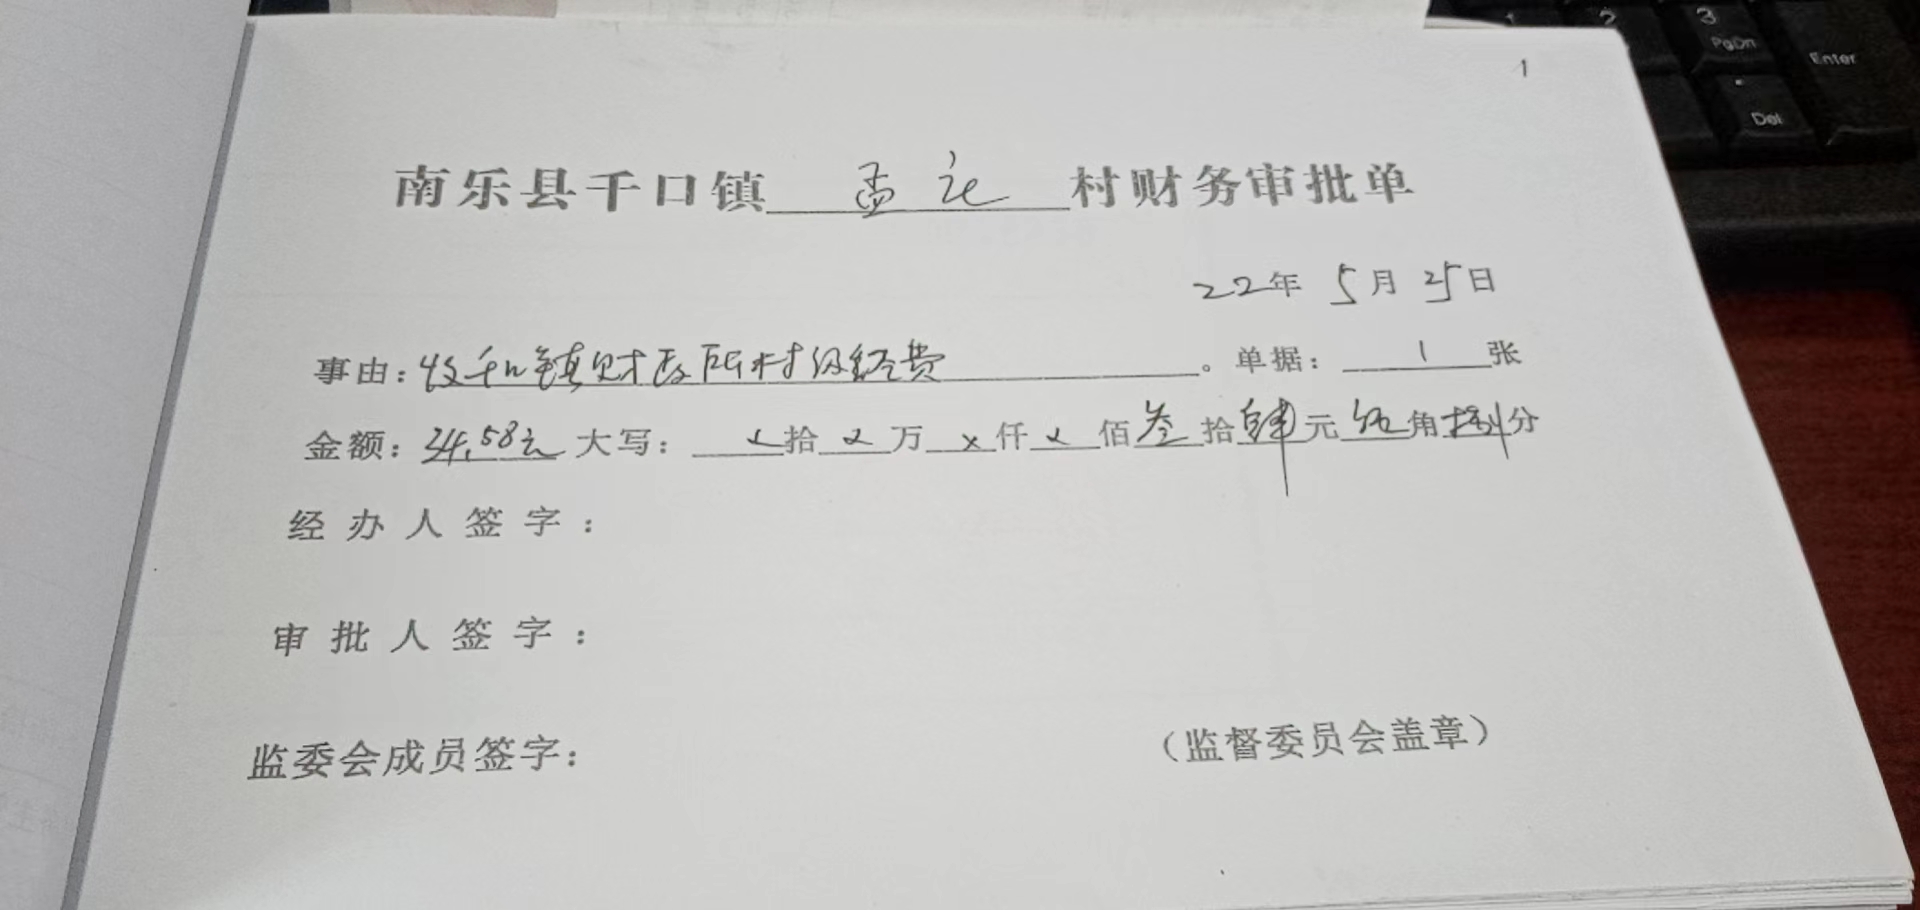 1
南乐县千口镇 孟 村财务审批单
22年 5月 25日
事由:收千口镇财政所村级经费。单据: 1 张
金额: 34.58元 大写: ×拾×万×仟×佰叁拾肆元伍角捌分
经办人签字:
审批人签字:
监委会成员签字:
(监督委员会盖章)
2
3
PgDn
Enter
.
Del